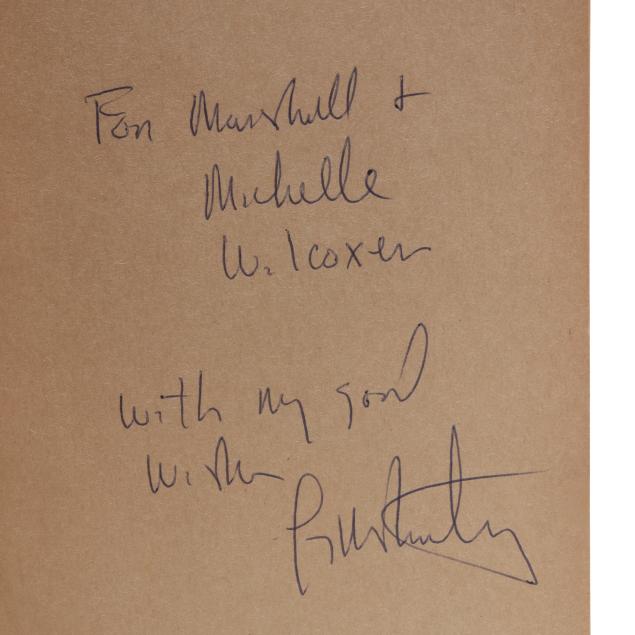 For Marshall +
Michelle
Wilcoxen
with my good
wishes